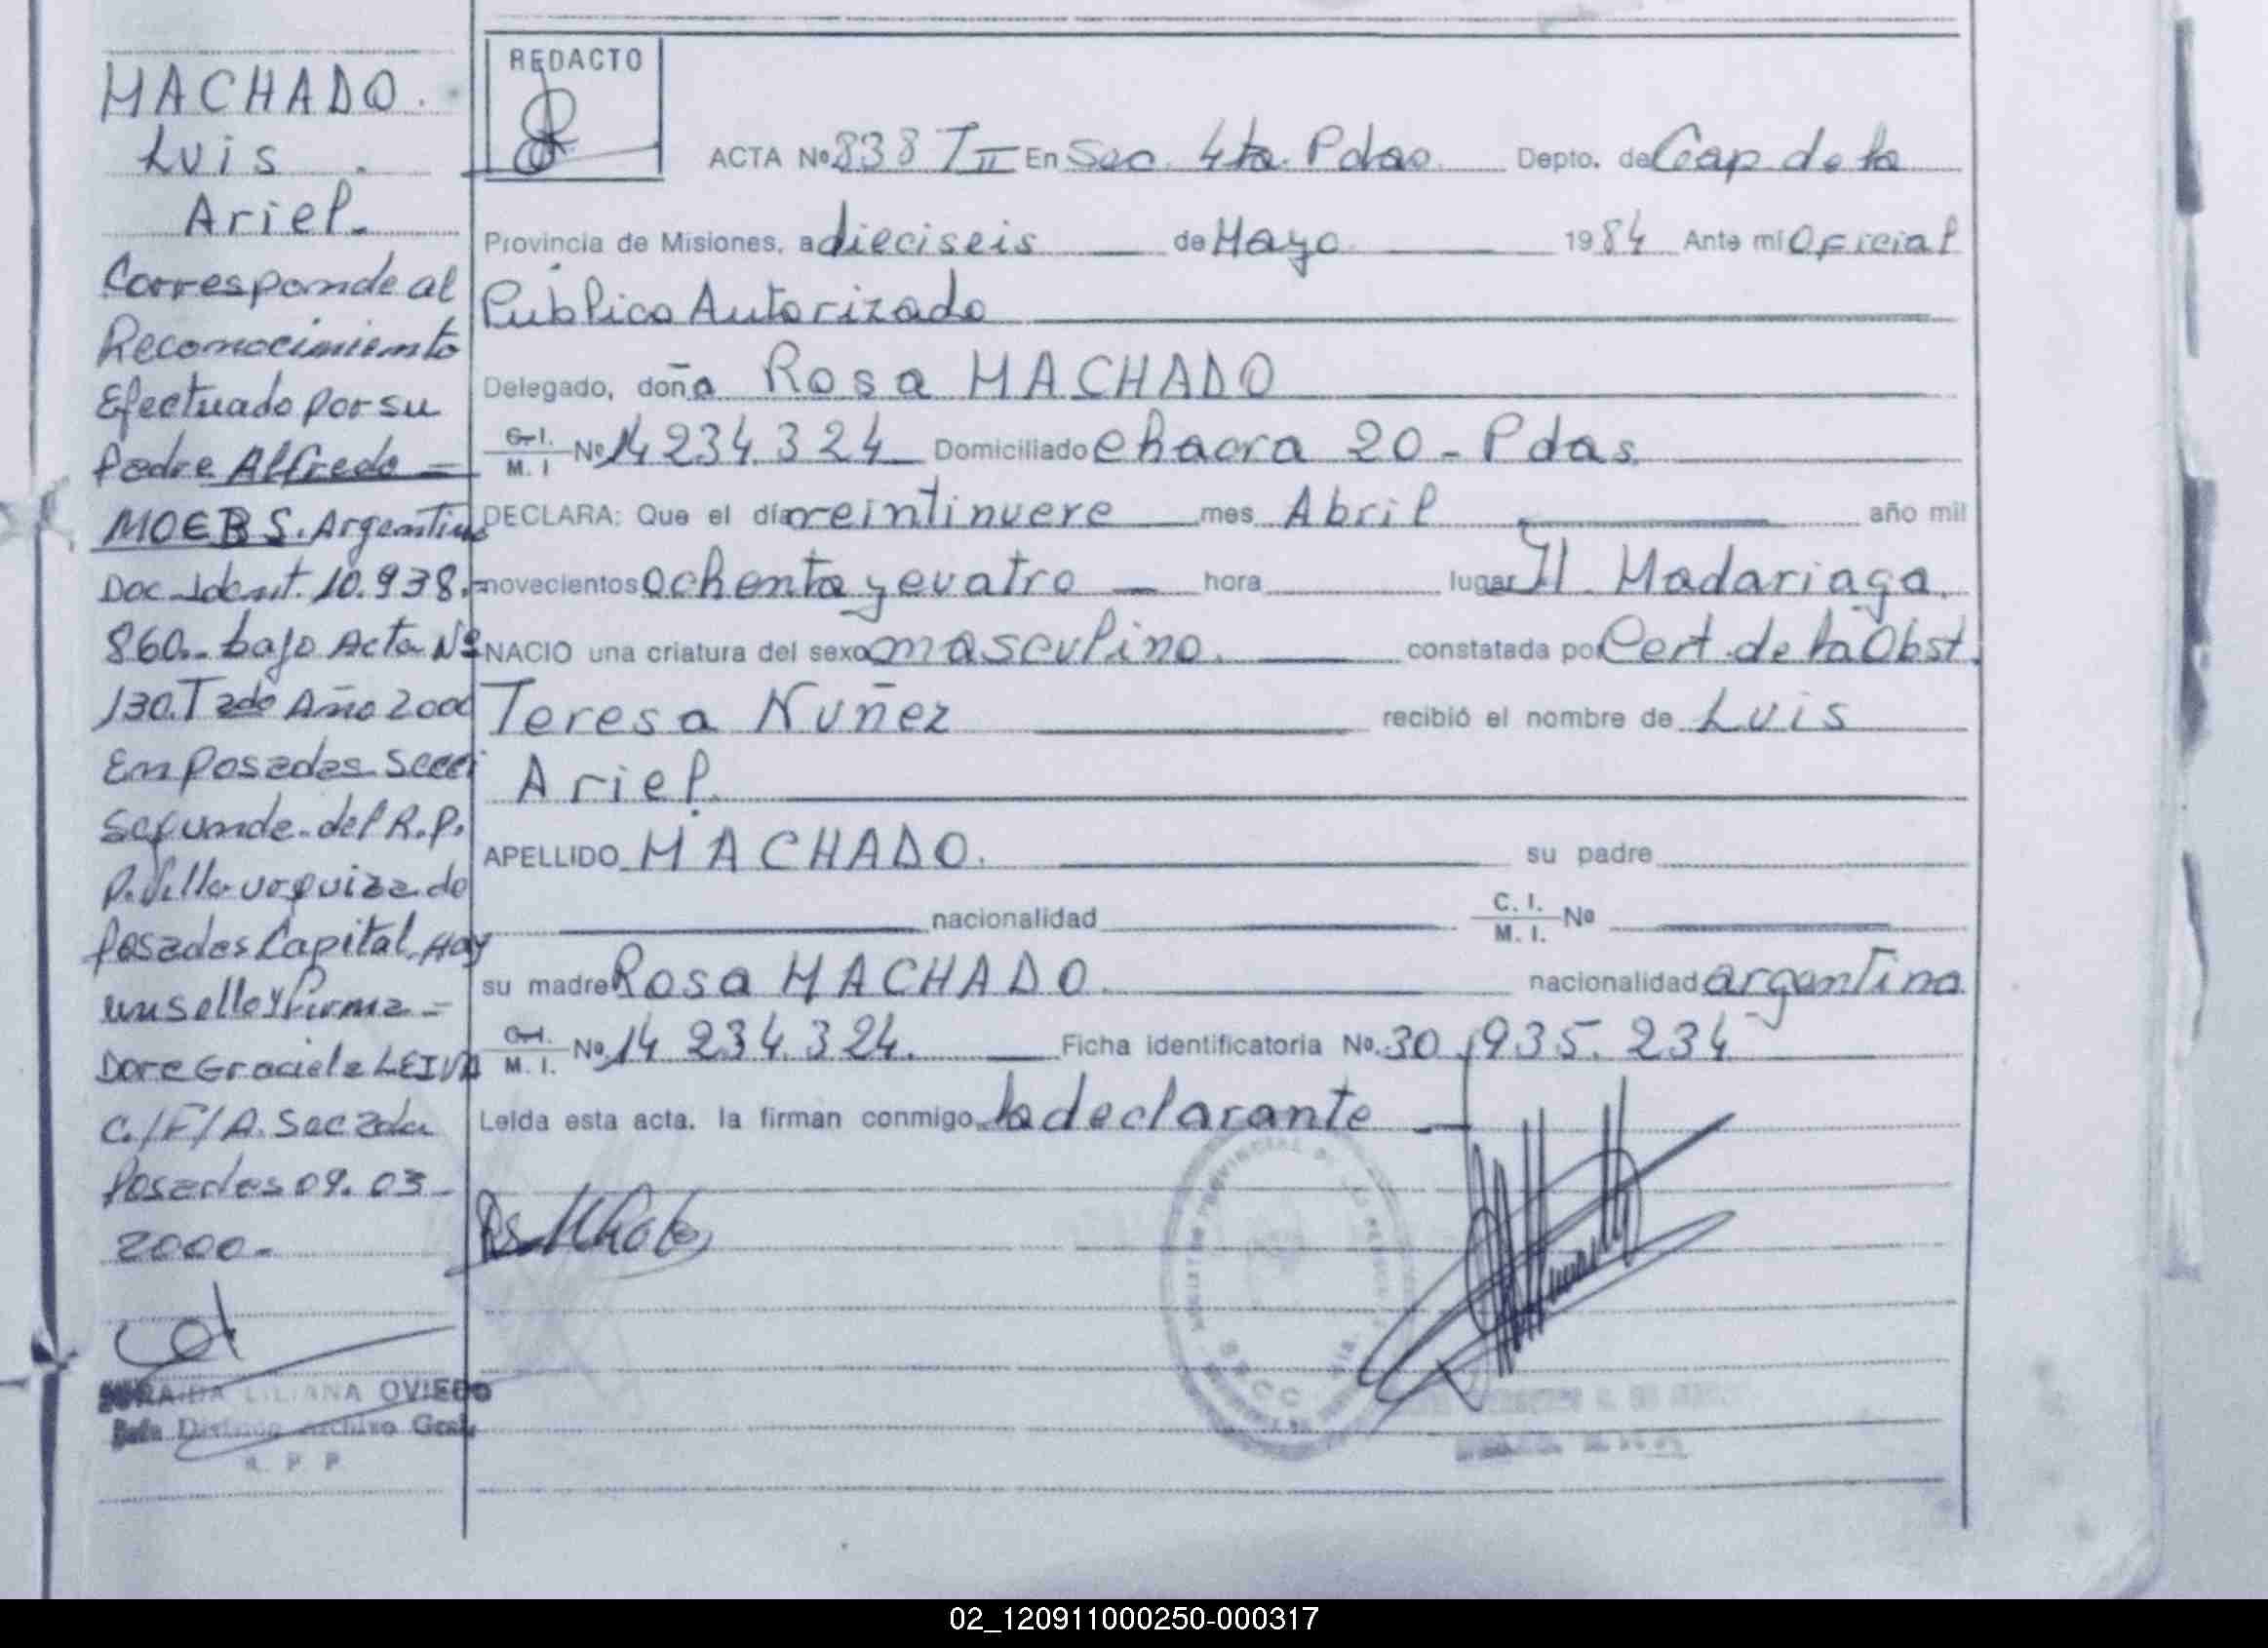 MACHADO.
Luis
Ariel.
Corresponde al
Reconocimiento
Efectuado por su
Padre Alfredo =
MOEBS. Argentino
Doc. Ident. 10.938.=
860.- bajo Acta Nº
130.T 2do Año 2000
En Posadas Secci
Segunda. del R.P.
P. Villa Urquiza de
Posadas Capital. Hay
un sello y firma =
Dora Graciela LEIVA
C./F/A. Sec 2da
Posadas 09. 03-
2000-
LILIANA OVIEDO
Archivo Gral
R. P. P
REDACTO
ACTA Nº 838 T II En Sec. 4ta. Pdas. Depto. de Cap. de la
Provincia de Misiones, a dieciseis de Mayo 1984 Ante mí Oficial
Publico Autorizado
Delegado, doña Rosa MACHADO
C. I. M. I Nº 14 234.324 Domiciliado chacra 20 - Pdas.
DECLARA: Que el día veintinueve mes Abril año mil
novecientos ochenta y cuatro hora lugar H. Madariaga.
NACIO una criatura del sexo masculino. constatada por Cert. de la Obst.
Teresa Nuñez recibió el nombre de Luis
Ariel.
APELLIDO MACHADO. su padre
nacionalidad C. I. M. I. Nº
su madre Rosa MACHADO. nacionalidad argentina
C. I. M. I. Nº 14 234.324. Ficha identificatoria Nº. 30.935.234
Leída esta acta, la firman conmigo la declarante
02_120911000250-000317